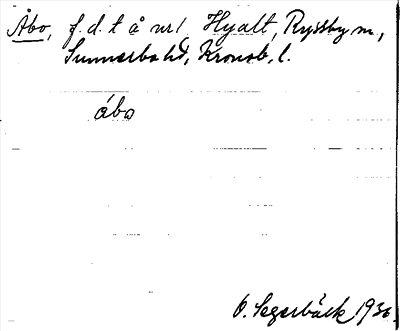 Åbo, f.d. t å nr 1 Hyalt, Ryssby sn,
Sunnerbo hd, Kronob. l.
ábo
O. Segerbäck 1936.